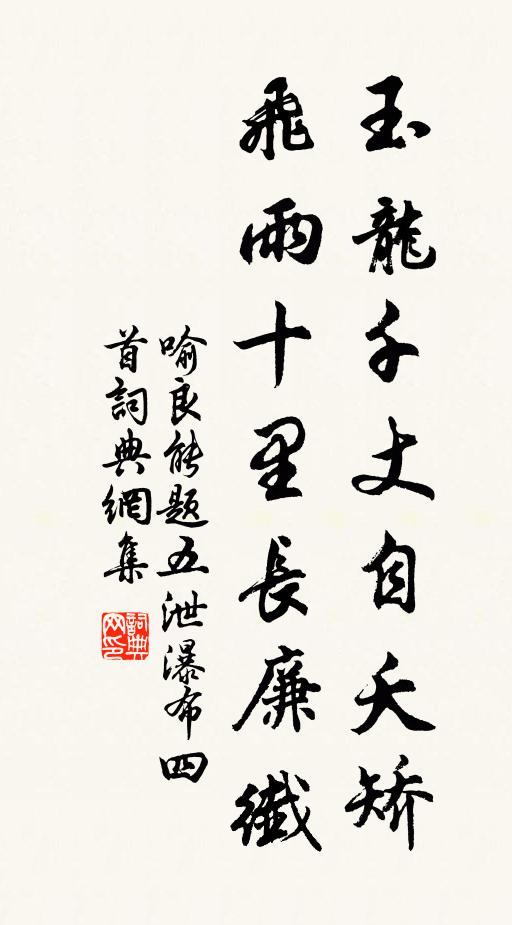 玉龍千丈自夭矯
飛雨十里長廉纖
喻良能題五泄瀑布四
首詞典網集
詞典
网印